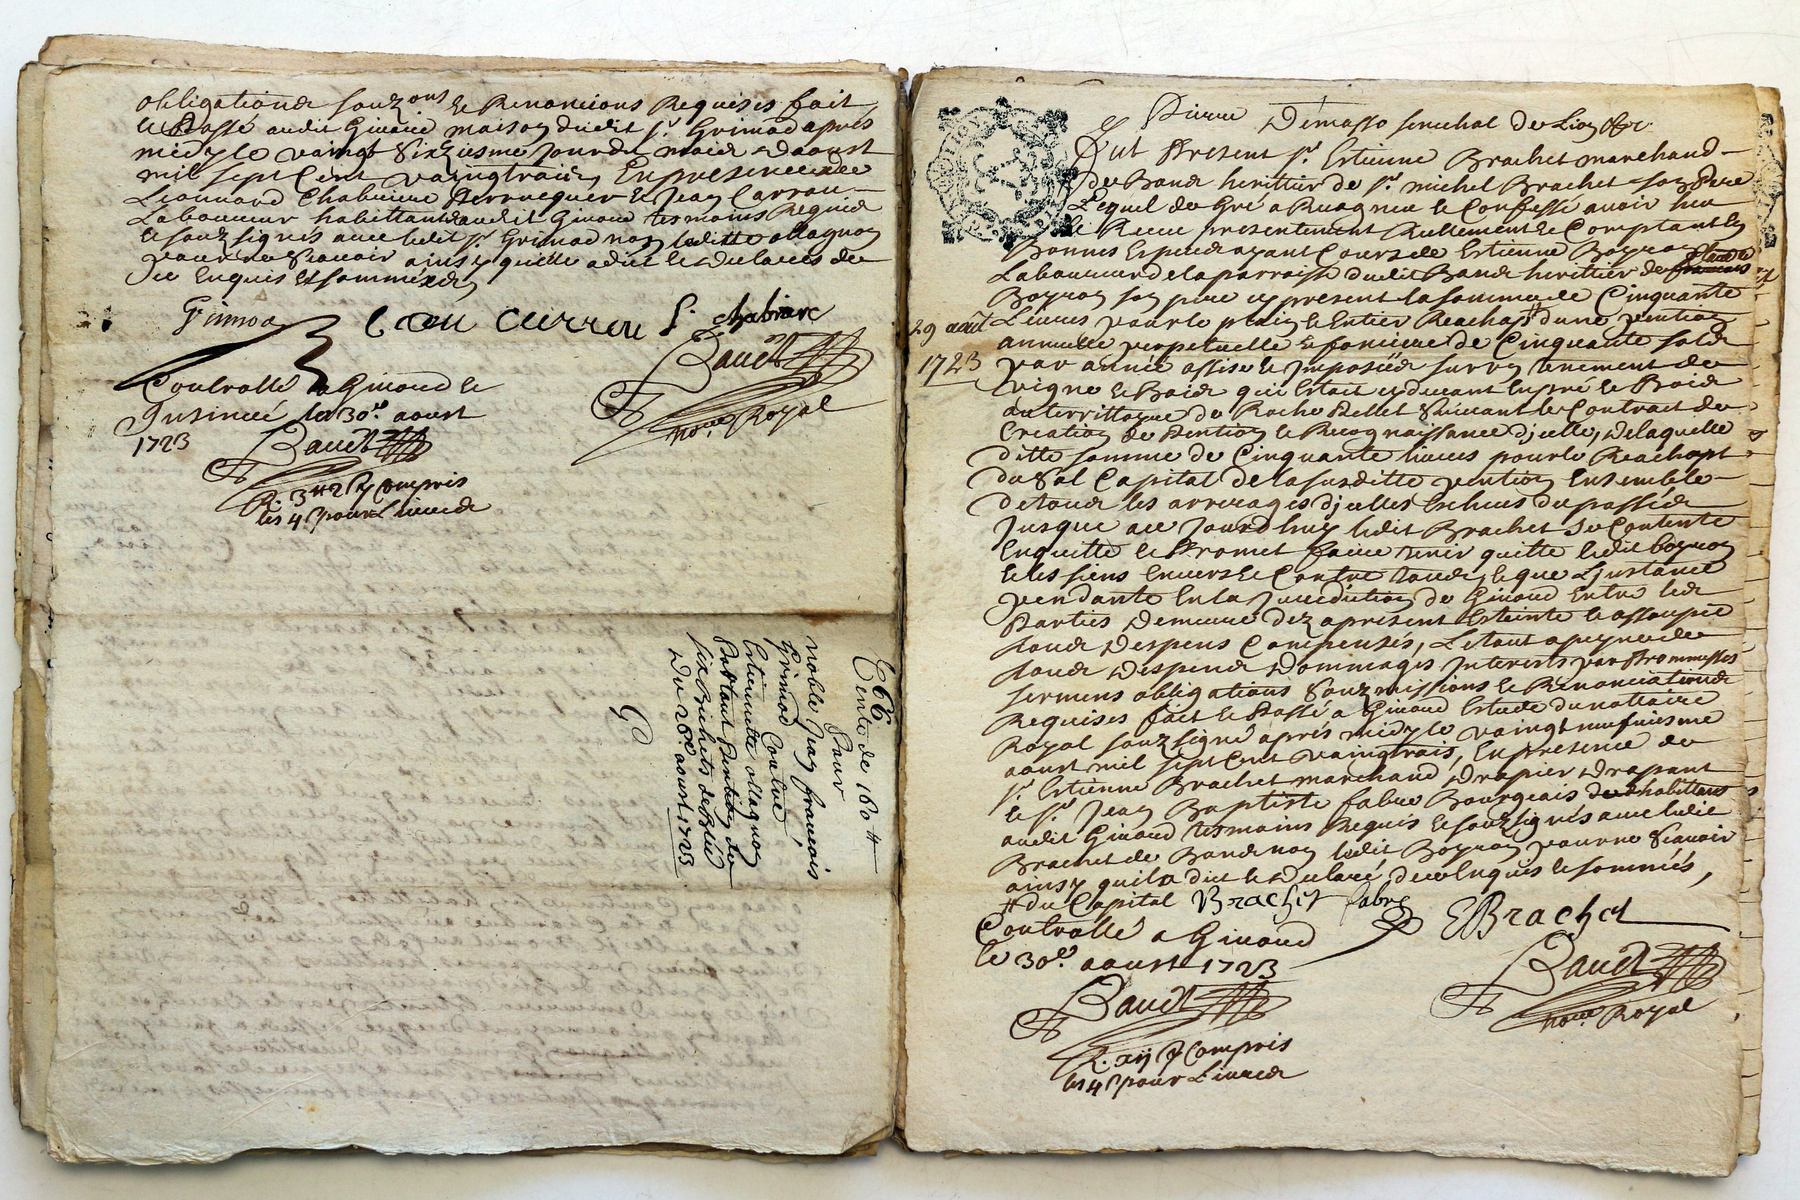 obligations souz ons et Renoncions Requises fait
et Passé audit Givord maison dudit sr. Grimod apres
midy le vaingt sixziesme jour du mois daoust
mil sept Cent vaingtrois, En presence de
Leonnard Chabriere Perruequier et Jean Carrou
Laboureur habittants audit Givord tesmoins Requis
et souzsignés avec ledit sr. Grimod non laditte allagnon
pour ne sçavoir ainsy quelle a dict et declaré de
ce Enquis et sommée
Grimod
Jean currou
chabriere
Baudt
nore. Royal
Controllé a Givord et
Insinué le 30e. aoust
1723
Baudt
R. 3tt 2s y Compris
les 4s pour Livre
66
Vente de 160tt
Pour
noble Jean françois
Grimod Contre
Estiennette allagnon
Portant Pention de
six Bichets de Bled
Du 26e. aoust 1723
Pierre Démasso senechal de Lion &c.
Fut Present sr. Estienne Brachet marchand
de Band herittier de sr. michel Brachet son Pere
Lequel de Gré a Recognu et Confessé avoir heu
et Receu presentement Reellement et Comptant en
Bonnes Especes ayant Cours de Estienne Boyron
Laboureur de la parroisse dudit Band heritier de françois
Claude
Boyron son pere icy present la somme de Cinquante
29 août
1723
Livres pour le plain et Entier Reachapt # dune pention
annuelle perpetuelle et fonciere de Cinquante sols
par année assise et Imposée sur un tenement de
vigne et Bois qui Estoit cydevant En pré et Bois
au territtoire de Roche Bellet suivant le Contract de
Creation de Pention et Recognaissance djcelle, De laquelle
ditte somme de Cinquante livres pour le Reachapt
du sol Capital de la susditte pention Ensemble
de tous les arrerages djcelles Escheus du passé
Jusque au Jourdhuy ledit Brachet se Contente
En quitte et Promet faire tenir quitte ledit boyron
et les siens Envers et Contre tous, et que L'instance
pendante En la Jurediction de Givord Entre les
Parties Demeure dez apresent Esteinte et assoupie
tous Despens Compensés, Le tout a peyne de
tous Despens Dommages Interests par Prommesses
sermens obligations souzmissions et Renonciations
Requises fait et Passé a Givord Estude du nottaire
Royal souzsigné aprés midy le vaingt neufviesme
aoust mil sept Cent vaingtrois, En presence de
sr. Estienne Brachet marchand Drapier Drapant
et sr. Jean Baptiste fabre Bourgeois habittans
audit Givord tesmoins Requis et souzsignés avec ledit
Brachet de Band non ledit Boyron pour ne sçavoir
ainsy quil a dict et Declaré de ce Enquis et sommés,
# du Capital
Brachet
fabre
EBrachet
Controllé a Givord
le 30e. aoust 1723
Baudt
nore. Royal
Baudt
R. xij s y Compris
les 4s pour Livre